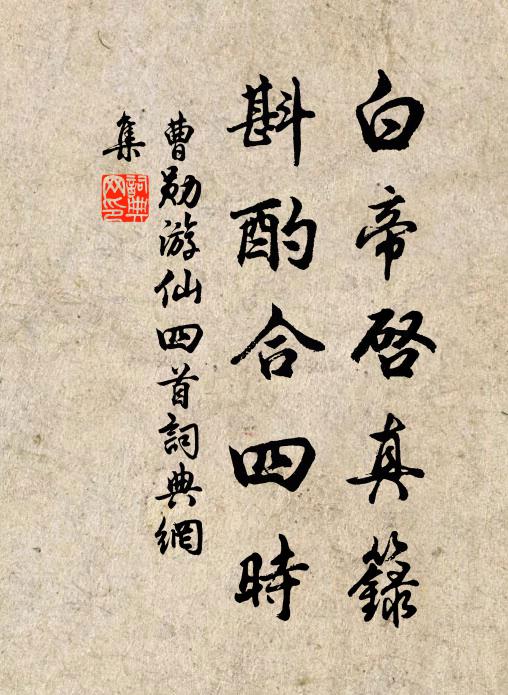 白帝啓真籙
斟酌合四時
曹勛游仙四首詞典網
集
詞典
网印